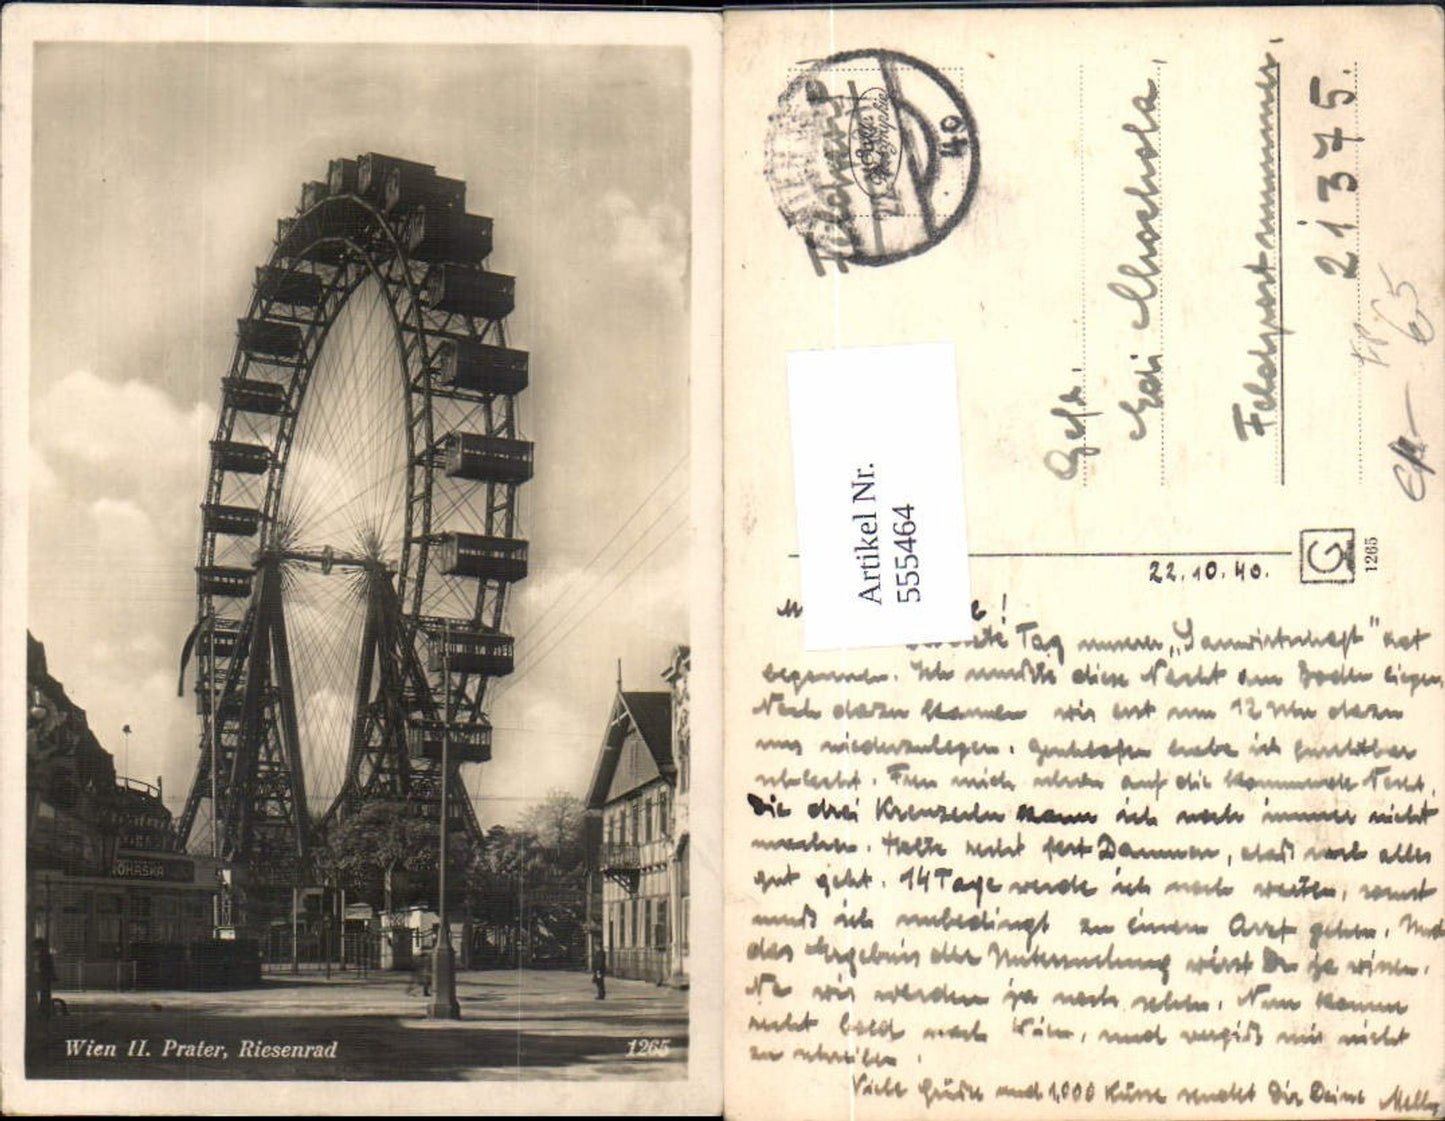 OHASKA
Wien II. Prater, Riesenrad
1265
Feldpost
40
Gefr.
Edi
Feldpostnummer
21375.
Artikel Nr.
555464
1265
22.10.40.
!
Tag unserer „ hat
begonnen. Ich mußte diese Nacht am Boden liegen,
Noch dazu kamen wir erst um 12 Uhr dazu
uns niederzulegen. Geschlafen habe ich furchtbar
schlecht. Freu mich schon auf die kommende Nacht.
Die drei Kreuzerln kann ich noch immer nicht
machen. Halte recht fest Daumen, daß noch alles
gut geht. 14 Tage werde ich noch warten, sonst
muß ich unbedingt zu einem Arzt gehen. Und
das Ergebnis der Untersuchung wirst Du ja wissen.
Na wir werden ja noch sehen. Nun komme
recht bald nach Wien, und vergiß mir nicht
zu schreiben.
Viele Grüße und 1,000 Küsse sendet Dir Deine Melly